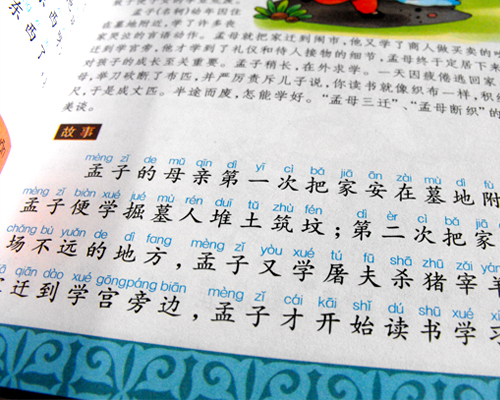 孟子(名轲)幼年因住
在墓地附近,学了许多丧
家哭泣的言语动作。孟母就把家迁到闹市,他又学了商人做买卖的
到学宫旁,他才学到了礼仪和待人接物的细节,孟母终于定居下来
对孩子的成长至关重要。孟子稍长,在外求学。一天因疲倦逃回家
母,举刀砍断了布匹,并严厉责斥儿子说,你读书就像织布一样,积丝
尺,于是成大匹。半途而废,怎能学好。“孟母三迁”、“孟母断织”的
美谈。
故事
mèng zǐ de mǔ qīn dì yī cì bǎ jiā ān zài mù dì fù
孟子的母亲第一次把家安在墓地附
mèng zǐ biàn xué jué mù rén duī tǔ zhù fén dì èr cì bǎ jiā
孟子便学掘墓人堆土筑坟;第二次把家
chǎng bù yuǎn de dì fang mèng zǐ yòu xué tú fū shā zhū zǎi yáng
场不远的地方,孟子又学屠夫杀猪宰羊
qiān dào xué gōng páng biān mèng zǐ cái kāi shǐ dú shū xué xí
迁到学宫旁边,孟子才开始读书学习